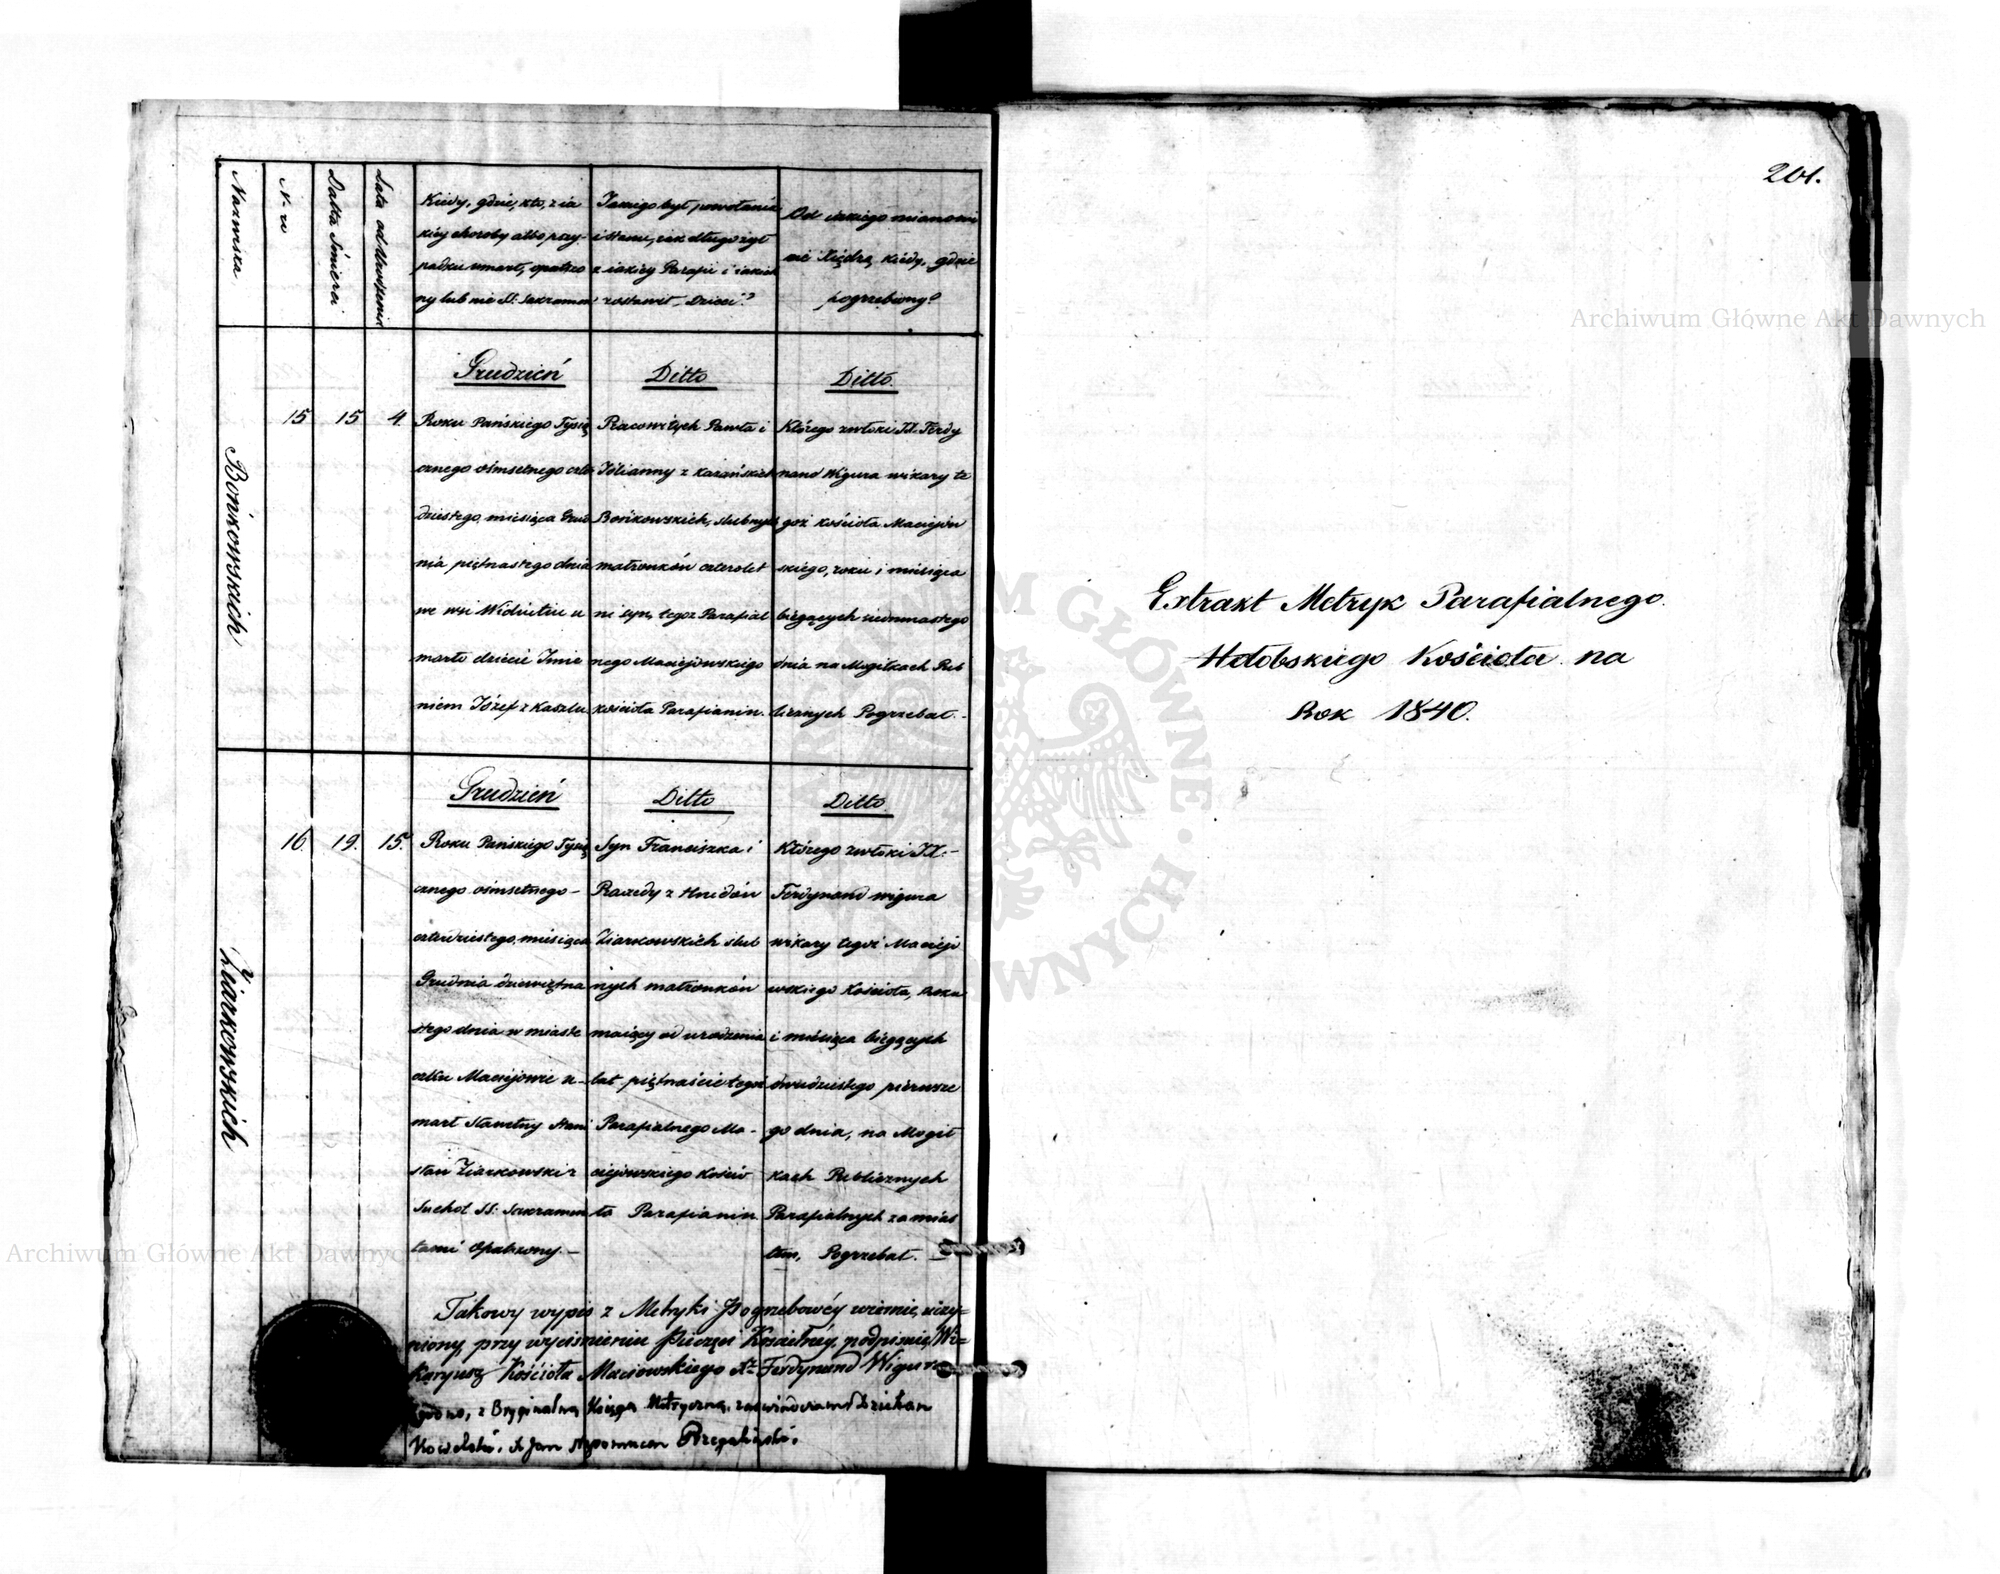 201.
Nazwiska
N-ru
Datta Śmierci
Lata od Urodzenia
Kiedy, gdzie, kto, z ia
kiey choroby albo przy-
padku umarł, opatrzo
ny lub nie SS: Sakramen
Jakiego był powołania
i stanu, iak długo żył
z iakiey Parafii i iakich
zostawił Dzieci?
Od iakiego mianowi
cie Xiędza, kiedy, gdzie
pogrzebiony?
Bońkowskich
15
15
4.
Grudzień
Roku Pańskiego Tysią
cznego ośmsetnego czter
dziestego, miesiąca Grud
nia piętnastego dnia
we wsi Widiutiu u
marło dziécie Imie
niem Józef z Kaszlu
Ditto
Pracowitych Pawła i
Jólianny z Kazańskich
Bońkowskich, slubnych
małzonków czterolet
ni syn, tegoz Parafial
nego Maciejówskiego
kościoła Parafianin.
Ditto.
Którego zwłoki JX. Ferdy
nand Wigura wikary te
goż kościoła Maciejów
skiego, roku i miésiąca
bieżących siedmnastego
dnia na Mogiłkach Pub
licznych Pogrzebał.-
Żiarkowskich
16.
19.
15.
Grudzień
Roku Pańskiego Tysią
cznego ośmsetnego-
czterdziestego, miesiąca
Grudnia dziewiętna
stego dnia w miaste
czku Maciejowie u-
marł Sławetny Stani
sław Ziarkowski z
Suchot SS: Sakramen
tami Opatrzony.-
Ditto
Syn Franciszka i
Praxedy z Hnidów
Ziarkowskich slub
nych małzonków
maiący od urodzenia
lat piętnaście tegoż
Parafialnego Ma-
ciejówskiego Kościo
ła Parafianin
Ditto.
Którego zwłoki JX.-
Ferdynand Wigura
wikary tegoż Maciejo
wskiego Kościoła, Roku
i miésiąca biégących
dwudziestego pierwsze
go dnia, na Mogił
kach Publicznych
Parafialnych za mias
tem, Pogrzebał.
Takowy wypis z Metryki Pogrzebowéy wiernie uczy-
niony, przy wyciśnieniu Pieczęci Koscielnéy, podpisuię Wi-
karyusz Kościoła Maciowskiego Xz Ferdynand Wigura
Zgodno, z Oryginalną Xsięgą Metryczną, zaświadczam Dziekan
Kowelski. X Jan Nepomucen
Extrakt Metryk Parafialnego
Hołobskiego Kościoła na
Rok 1840.
Archiwum Główne Akt Dawnych
Archiwum Główne Akt Dawnych